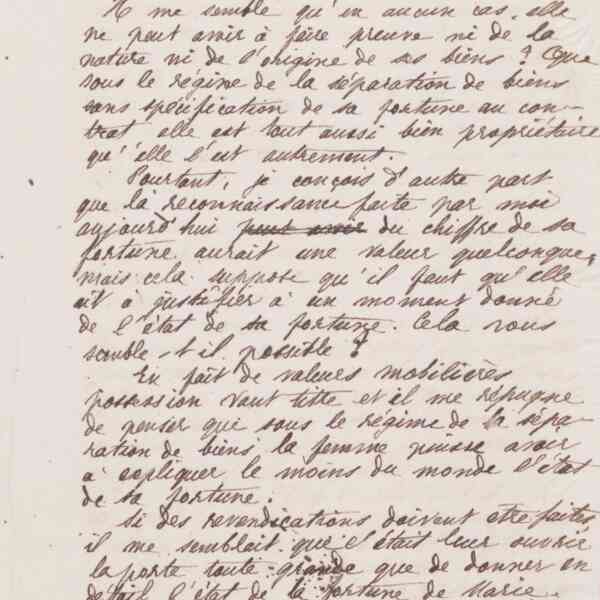 Il me semble qu'en aucun cas, elle
ne peut avoir à faire preuve ni de la
nature ni de l'origine de ses biens ? Que
sous le régime de la séparation de biens
sans spécification de sa fortune au con-
trat elle est tout aussi bien propriétaire
qu'elle l'est autrement.
Pourtant, je conçois d'autre part
que la reconnaissance faite par moi
aujourd'hui peut avoir du chiffre de sa
fortune aurait une valeur quelconque,
mais cela suppose qu'il faut qu'elle
ait à justifier à un moment donné
de l'état de sa fortune. Cela vous
semble-t-il possible ?
En fait de valeurs mobilières
possession vaut titre et il me répugne
de penser que sous le régime de la sépa-
ration de biens la femme puisse avoir
à expliquer le moins du monde l'état
de sa fortune.
Si des revendications doivent être faites
il me semblait que c'était leur ouvrir
la porte toute grande que de donner en
détail l'état de la fortune de Marie.